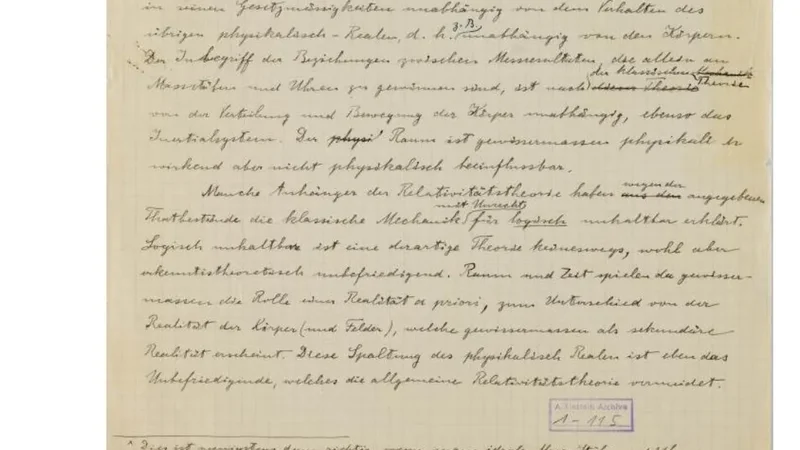 in seinen Gesetzmässigkeiten unabhängig von dem Verhalten des
übrigen physikalisch-Realen, d. h. z. B. unabhängig von den Körpern.
Der Inbegriff der Beziehungen zwischen Messresultaten, die allein an
der klassischen Mechanik Theorie
Massstäben und Uhren zu gewinnen sind, ist nach dieser Theorie
von der Verteilung und Bewegung der Körper unabhängig, ebenso das
Inertialsystem. Der physi Raum ist gewissermassen physikalisch
wirkend aber nicht physikalisch beeinflussbar.
Manche Anhänger der Relativitätstheorie haben wegen der aus den angegebenen
Thatbestände die klassische Mechanik mit Unrecht für logisch unhaltbar erklärt.
Logisch unhaltbar ist eine derartige Theorie keineswegs, wohl aber
erkenntnistheoretisch unbefriedigend. Raum und Zeit spielen da gewisser-
massen die Rolle einer Realität a priori, zum Unterschied von der
Realität der Körper (und Felder), welche gewissermassen als sekundäre
Realität erscheint. Diese Spaltung des physikalisch Realen ist eben das
Unbefriedigende, welches die allgemeine Relativitätstheorie vermeidet.
A. Einstein Archive
1-115